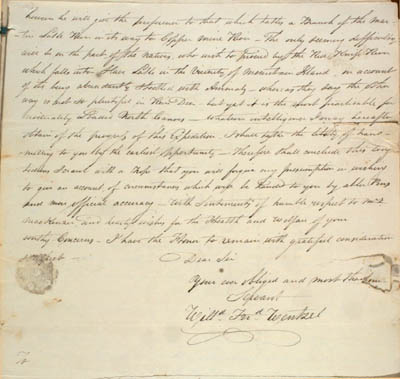 he will give the preference to that which takes a Branch of the
Slave River in its way to Copper mine River - The only seeming difficulty
will be on the part of the natives, who wish to proceed by the
River which falls into Slave Lake in the vicinity of Mountain Island, on account
of its being abundantly Stocked with Animals - when as they say the other
way is but so plentiful in Rein Deer - but yet it is the short practicable for
tolerably Sized North Canoes - Whatever intelligence I may hereafter
obtain of the progress of this Expedition I shall take the liberty of trans-
mitting to you by the earliest Opportunity - therefore shall conclude this very
tedious Scrawl with a Hope that you will forgive my presumption in wishing
to give an account of circumstances which will be handed to you by able Pens
and more official accuracy - With Sentiments of humble respect to Mrs
MacKenzie and hearty wishes for the Health and Welfare of your
worthy Concerns - I have the Honor to remain with grateful consideration
Dear Sir
Your ever Obliged and most
Servant
Willd. Ferd. Wentzel